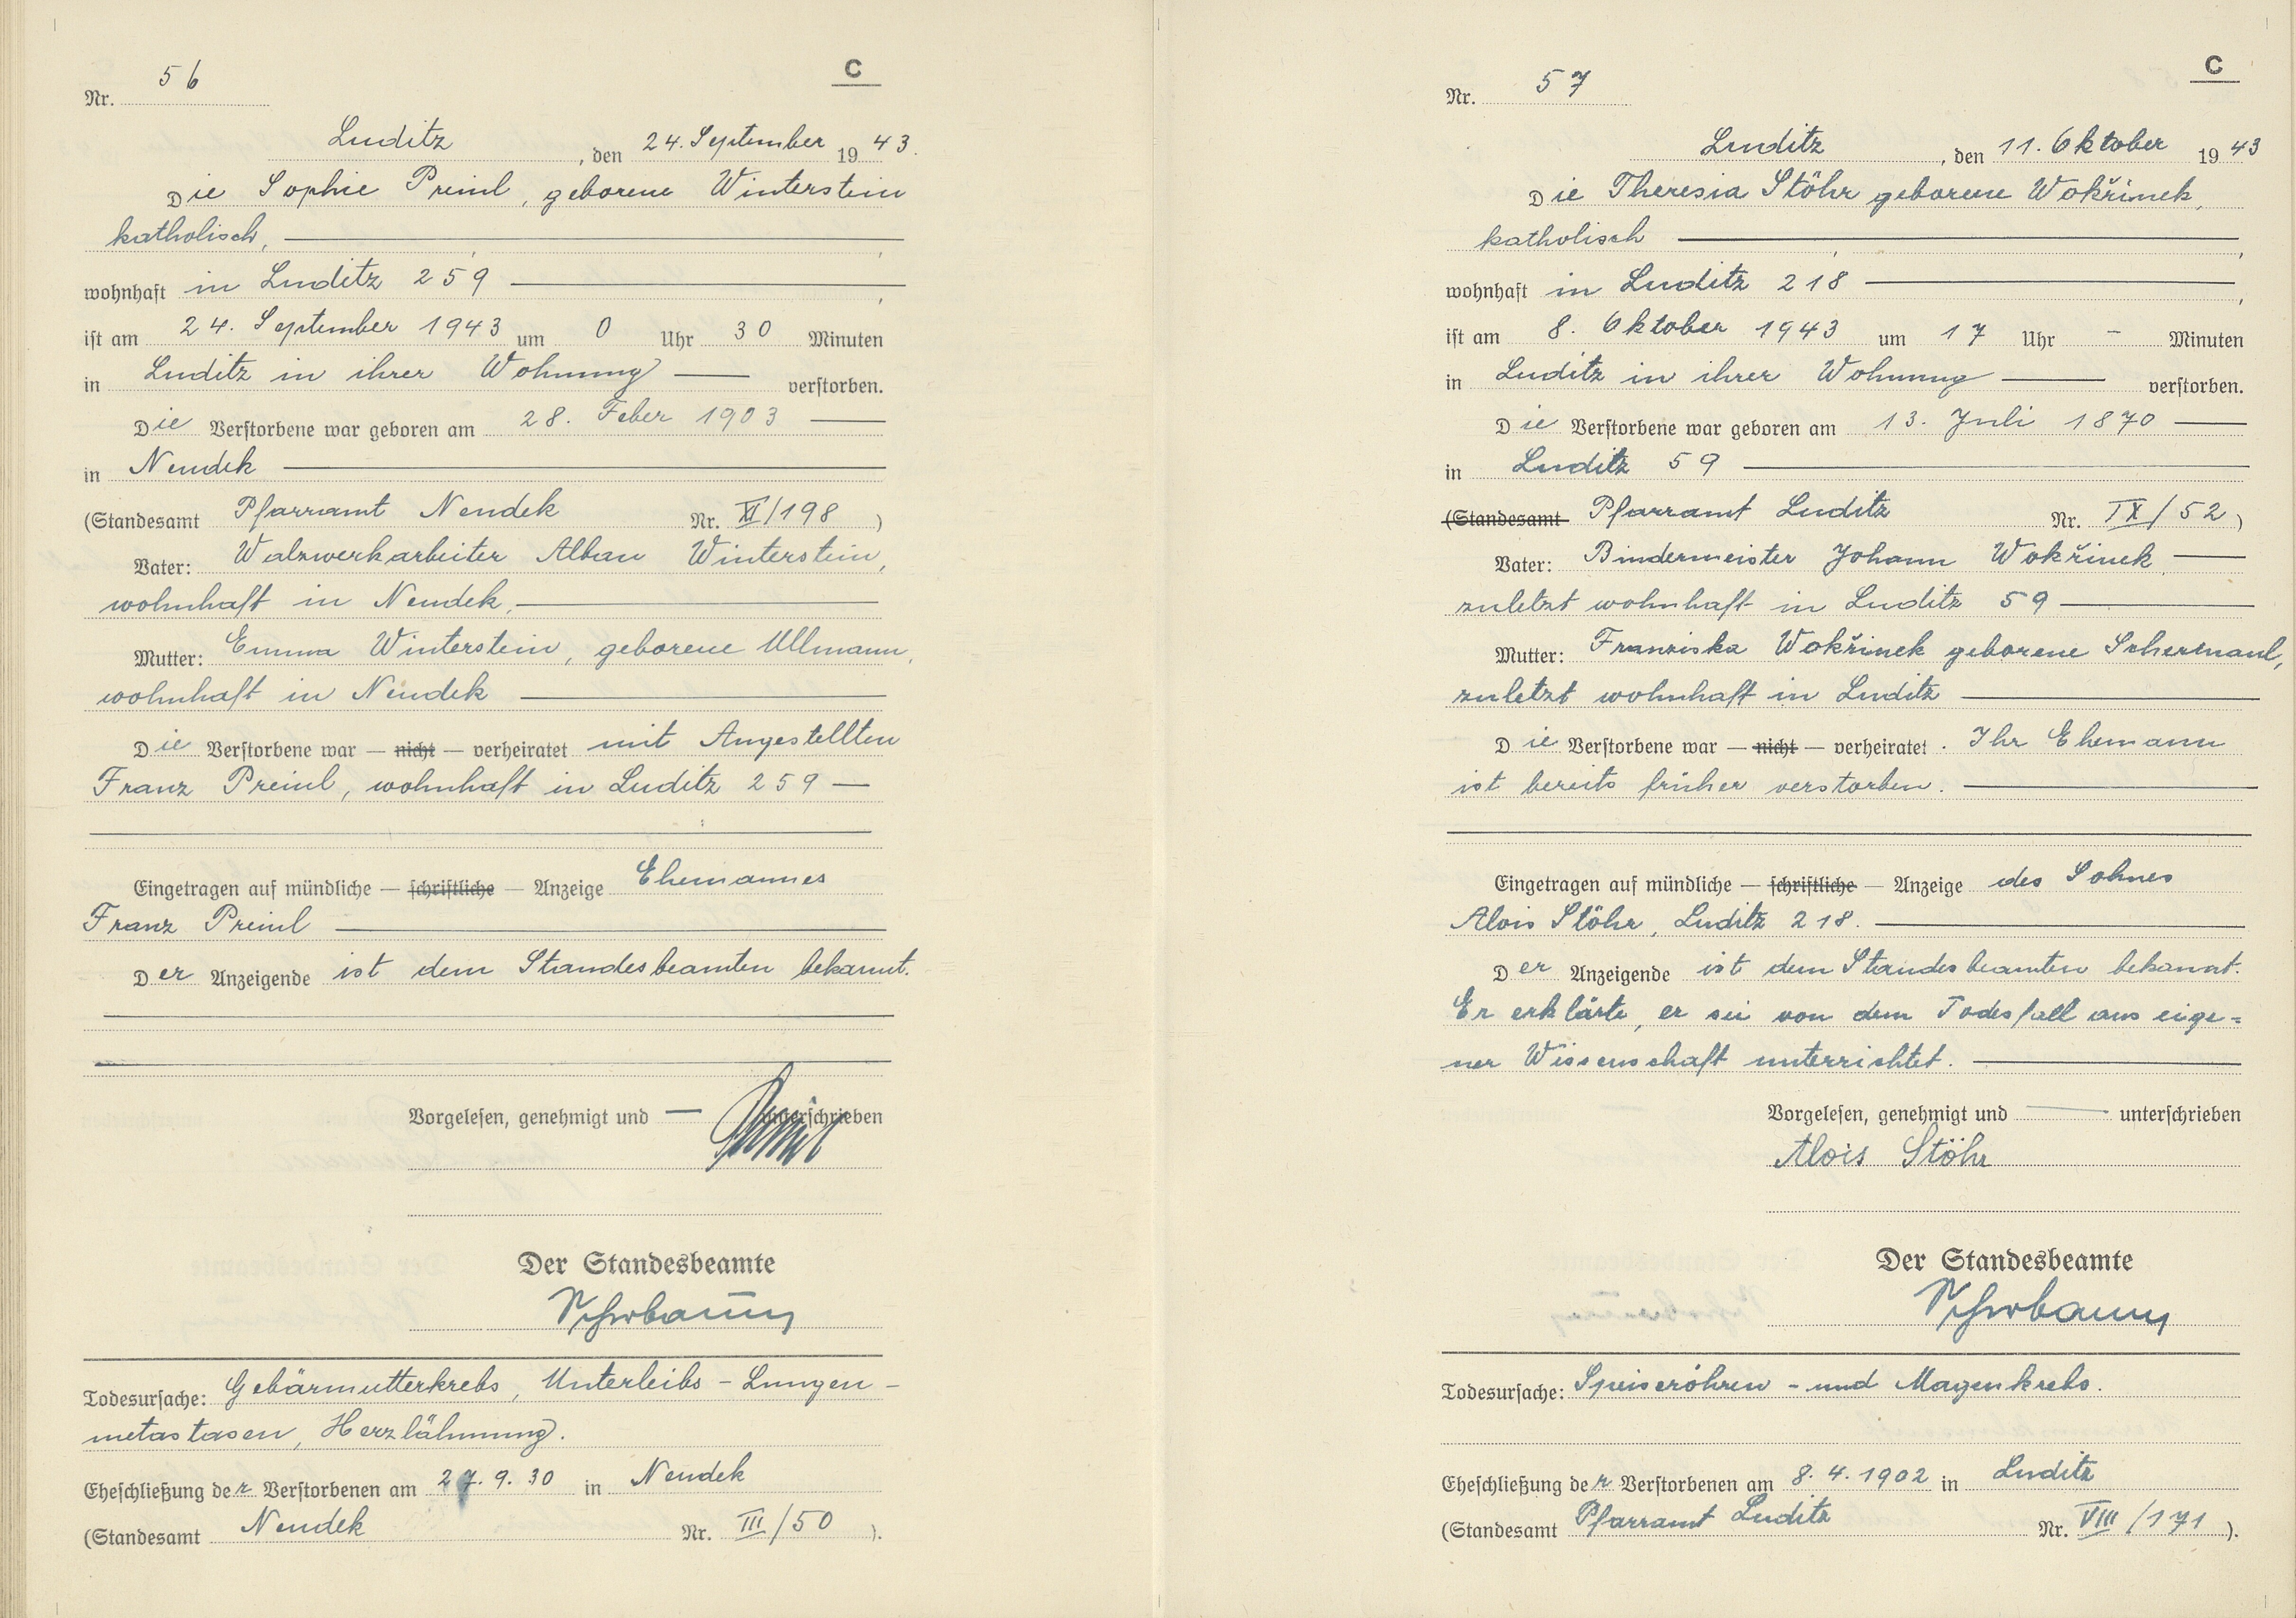 C
Nr. 56
Luditz, den 24. September 1943.
Die Sophie Preinl, geborene Winterstein
katholisch,
wohnhaft in Luditz 259
ist am 24. September 1943 um 0 Uhr 30 Minuten
in Luditz in ihrer Wohnung verstorben.
Die Verstorbene war geboren am 28. Feber 1903
in Neudek
(Standesamt Pfarramt Neudek Nr. XI/198)
Vater: Walzwerkarbeiter Alban Winterstein,
wohnhaft in Neudek,
Mutter: Emma Winterstein, geborene Ullmann,
wohnhaft in Neudek
Die Verstorbene war — nicht — verheiratet mit Angestellten
Franz Preinl, wohnhaft in Luditz 259
Eingetragen auf mündliche — schriftliche — Anzeige Ehemannes
Franz Preinl
Der Anzeigende ist dem Standesbeamten bekannt.
Vorgelesen, genehmigt und — unterschrieben
Der Standesbeamte
Todesursache: Gebärmutterkrebs, Unterleibs - Lungen -
metastasen, Herzlähmung.
Eheschließung der Verstorbenen am 27.9.30 in Neudek
(Standesamt Neudek Nr. III/50).
C
Nr. 57
Luditz, den 11. Oktober 1943
Die Theresia Stöhr geborene Wokřinek,
katholisch
wohnhaft in Luditz 218
ist am 8. Oktober 1943 um 17 Uhr - Minuten
in Luditz in ihrer Wohnung verstorben.
Die Verstorbene war geboren am 13. Juli 1870
in Luditz 59
(Standesamt Pfarramt Luditz Nr. IX/52)
Vater: Bindermeister Johann Wokřinek
zuletzt wohnhaft in Luditz 59
Mutter: Franziska Wokřinek geborene
zuletzt wohnhaft in Luditz
Die Verstorbene war — nicht — verheiratet. Ihr Ehemann
ist bereits früher verstorben.
Eingetragen auf mündliche — schriftliche — Anzeige des Sohnes
Alois Stöhr, Luditz 218.
Der Anzeigende ist dem Standesbeamten bekannt.
Er erklärte, er sei von dem Todesfall aus eige=
ner Wissenschaft unterrichtet.
Vorgelesen, genehmigt und — unterschrieben
Alois Stöhr
Der Standesbeamte
Todesursache: Speiseröhren - und Magenkrebs.
Eheschließung der Verstorbenen am 8.4.1902 in Luditz
(Standesamt Pfarramt Luditz Nr. VIII/171).